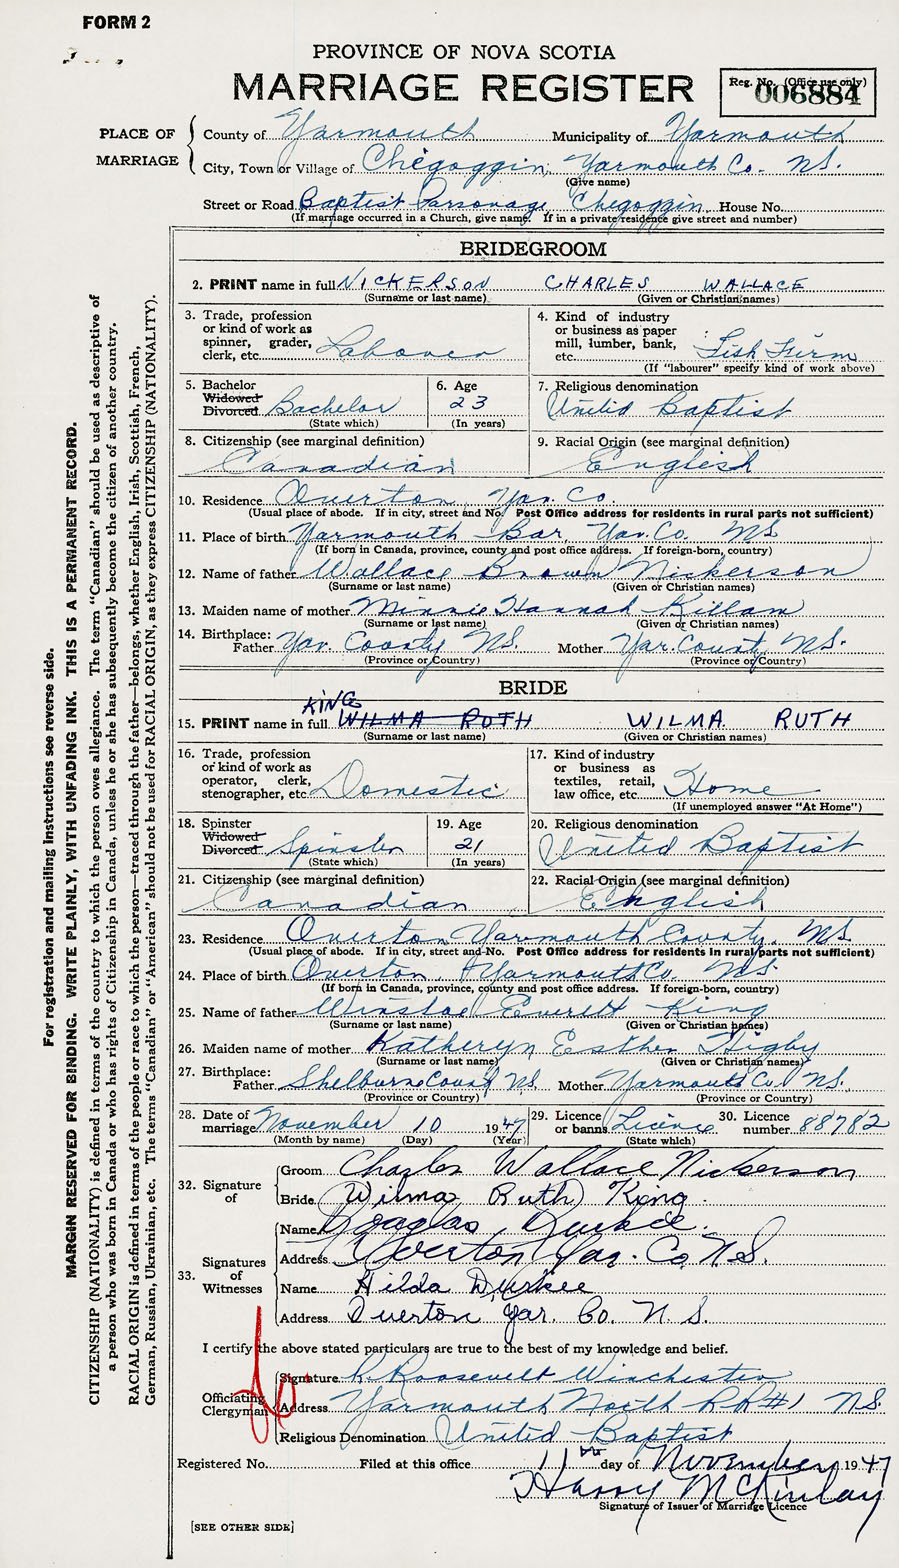 FORM 2
PROVINCE OF NOVA SCOTIA
MARRIAGE REGISTER
Reg. No. (Office use only)
006884
PLACE OF MARRIAGE
County of Yarmouth Municipality of Yarmouth
City, Town or Village of Chegoggin, Yarmouth Co. N.S.
(Give name)
Street or Road Baptist Parsonage, Chegoggin, House No.
(If marriage occurred in a Church, give name. If in a private residence give street and number)
BRIDEGROOM
2. PRINT name in full NICKERSON CHARLES WALLACE
(Surname or last name) (Given or Christian names)
3. Trade, profession or kind of work as spinner, grader, clerk, etc. Laborer
4. Kind of industry or business as paper mill, lumber, bank, etc. Fish Firm
(If "labourer" specify kind of work above)
5. Bachelor Widowed Divorced Bachelor
(State which)
6. Age 23
(In years)
7. Religious denomination United Baptist
8. Citizenship (see marginal definition) Canadian
9. Racial Origin (see marginal definition) English
10. Residence Overton, Yar. Co.
(Usual place of abode. If in city, street and No. Post Office address for residents in rural parts not sufficient)
11. Place of birth Yarmouth Bar, Yar. Co. N.S.
(If born in Canada, province, county and post office address. If foreign-born, country)
12. Name of father Wallace Brown Nickerson
(Surname or last name) (Given or Christian names)
13. Maiden name of mother Minnie Hannah Killam
(Surname or last name) (Given or Christian names)
14. Birthplace: Father Yar. County N.S. Mother Yar. County N.S.
(Province or Country) (Province or Country)
BRIDE
KING
15. PRINT name in full WILMA RUTH WILMA RUTH
(Surname or last name) (Given or Christian names)
16. Trade, profession or kind of work as operator, clerk, stenographer, etc. Domestic
17. Kind of industry or business as textiles, retail, law office, etc. Home
(If unemployed answer "At Home")
18. Spinster Widowed Divorced Spinster
(State which)
19. Age 21
(In years)
20. Religious denomination United Baptist
21. Citizenship (see marginal definition) Canadian
22. Racial Origin (see marginal definition) English
23. Residence Overton Yarmouth County, N.S.
(Usual place of abode. If in city, street and No. Post Office address for residents in rural parts not sufficient)
24. Place of birth Overton, Yarmouth Co. N.S.
(If born in Canada, province, county and post office address. If foreign-born, country)
25. Name of father Everett King
(Surname or last name) (Given or Christian names)
26. Maiden name of mother Katheryn Esther Higby
(Surname or last name) (Given or Christian names)
27. Birthplace: Father Shelburne County N.S. Mother Yarmouth Co. N.S.
(Province or Country) (Province or Country)
28. Date of marriage November 10 1947
(Month by name) (Day) (Year)
29. Licence or banns Licence
(State which)
30. Licence number 88782
32. Signature of
Groom Charles Wallace Nickerson
Bride Wilma Ruth King.
33. Signatures of Witnesses
Name Douglas Durkee.
Address Overton Yar. Co. N.S.
Name Hilda Durkee
Address Overton Yar. Co. N.S.
I certify the above stated particulars are true to the best of my knowledge and belief.
Officiating Clergyman
Signature R. Roosevelt Winchester
Address Yarmouth North RR#1 N.S.
Religious Denomination United Baptist
Registered No. Filed at this office 11th day of November 1947
Harry McKinlay
Signature of Issuer of Marriage Licence
[SEE OTHER SIDE]
For registration and mailing instructions see reverse side.
MARGIN RESERVED FOR BINDING. WRITE PLAINLY, WITH UNFADING INK. THIS IS A PERMANENT RECORD.
CITIZENSHIP (NATIONALITY) is defined in terms of the country to which the person owes allegiance. The term "Canadian" should be used as descriptive of
a person who was born in Canada or who has rights of Citizenship in Canada, unless he or she has subsequently become the citizen of another country.
RACIAL ORIGIN is defined in terms of the people or race to which the person—traced through the father—belongs, whether English, Irish, Scottish, French,
German, Russian, Ukrainian, etc. The terms "Canadian" or "American" should not be used for RACIAL ORIGIN, as they express CITIZENSHIP (NATIONALITY).